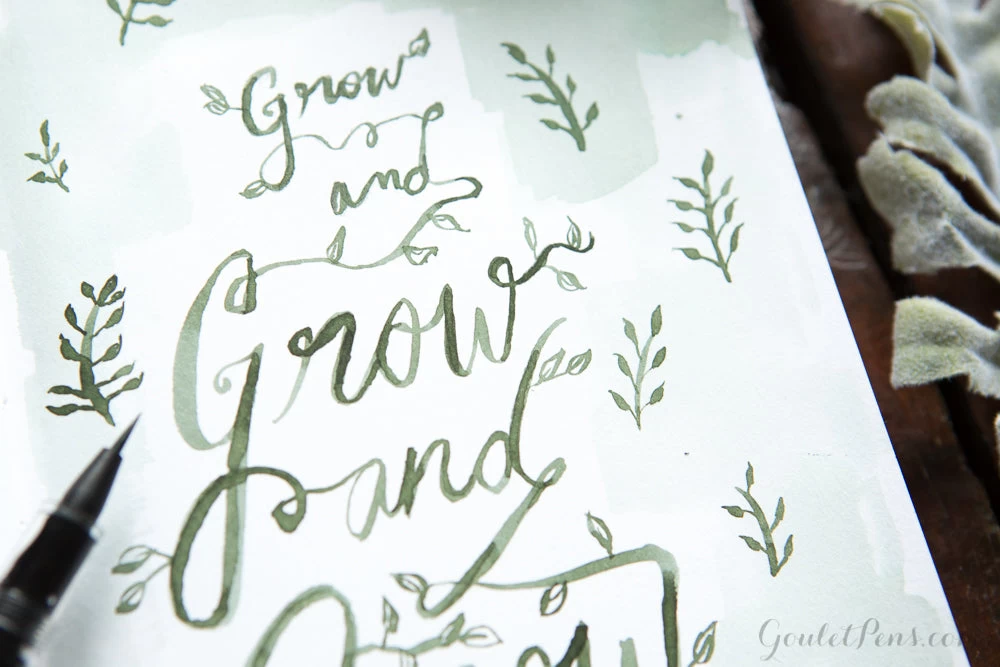 Grow
and
Grow
and
GouletPens.com